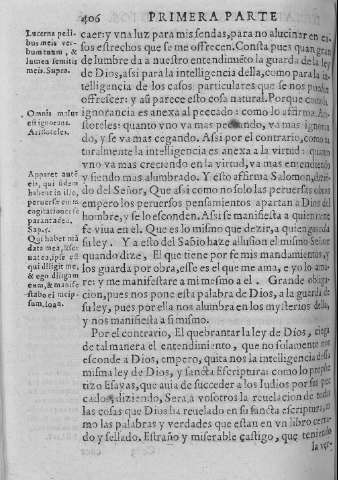 406 PRIMERA PARTE
Lucerna pedibus meis verbum tuum, & lumen semitis meis. Supra.
Omnis malus est ignorans. Aristoteles.
Apparet autē eis, qui fidem habent in illo, peruersæ enim cogitationes separant a deo. Sap. 1.
Qui habet mādata mea, & seruat ea, ipse est qui diligit me, & ego diligam eum, & manifestabo ei meipsum. Ioan.
caer: y vna luz para mis sendas, para no alucinar en casos
estrechos que se me offrecen. Consta pues quan gran
de lumbre da a nuestro entendimiēto la guarda de la ley
de Dios, assi para la intelligencia della, como para la in
telligencia de los casos particulares que se nos puedan
offrescer: y aũ parece esto cosa natural. Porque como la
ignorancia es anexa al peccado: como lo affirma Ari
stoteles: quanto vno va mas peccando, va mas ignorā
do, y se va mas cegando. Assi por el contrario, como na
turalmente la intelligencia es anexa a la virtud: quanto
vno va mas creciendo en la virtud, va mas entendiendo
y siendo mas alumbrado. Y esto affirma Salomon, diziē
do del Señor, Que assi como no solo las peruersas obras
empero los peruersos pensamientos apartan a Dios del
hombre, y se lo esconden. Assi se manifiesta a quien tiene
fe viua en el. Que es lo mismo que dezir, a quien guarda
su ley. Y a esto del Sabio haze allusion el mismo Señor
quando dize, El que tiene por fe mis mandamientos, y
los guarda por obra, esse es el que me ama, e yo lo ama
re: y me manifestare a mi mesmo a el. Grande obliga
cion, pues nos pone esta palabra de Dios, a la guarda de
su ley, pues por ella nos alumbra en los mysterios della,
y nos manifiesta a si mismo.
Por el contrario, El quebrantar la ley de Dios, ciega
de tal manera el entendimiento, que no solamente nos
esconde a Dios, empero, quita nos la intelligencia de la
misma ley de Dios, y sancta Escriptura: como lo prophe
tizo Esayas, que auia de succeder a los Iudios por sus pec
cados, diziendo, Sera a vosotros la reuelacion de todas
las cosas que Dios ha reuelado en su sancta escriptura, co
mo las palabras y verdades que estan en vn libro cerra
do y sellado. Estraño y miserable castigo, que teniendo